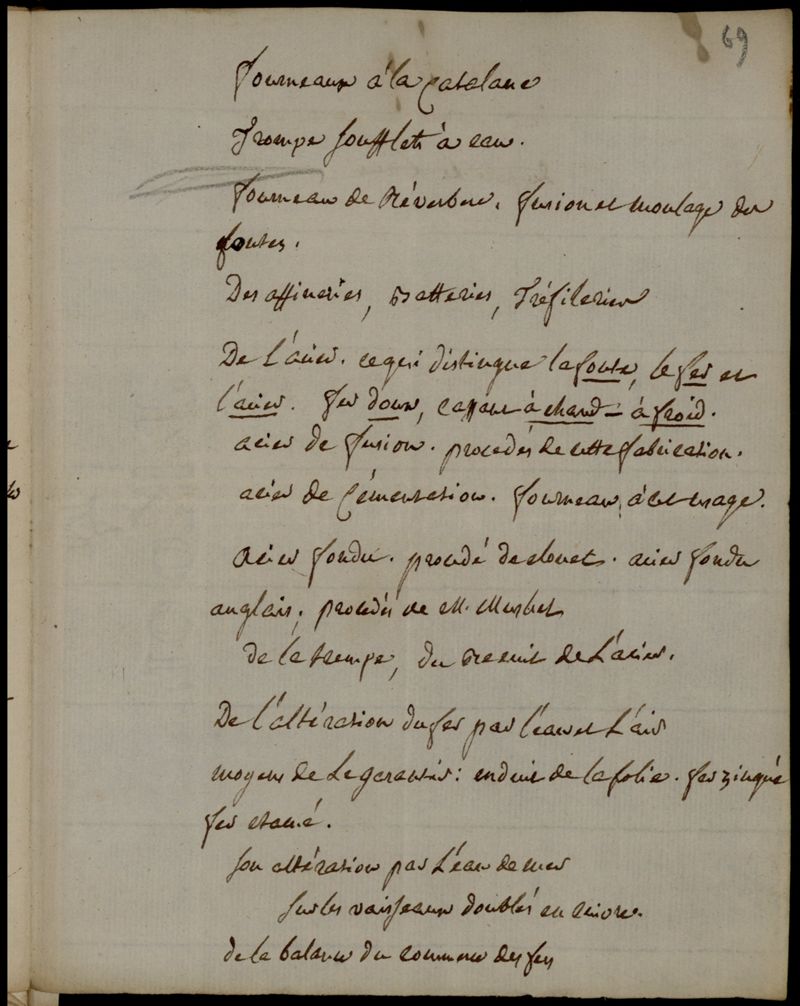 69
fourneaux à la Catalane
Trompe soufflets à eau.
fourneau de Réverbere. fusion et moulage des
fontes.
Des affineries, Batteries, Tréfileries
De l'acier. ce qui distingue la fonte, le fer et
l'acier. fer doux, cassant à chaud – à froid.
acier de fusion. procedés de cette fabrication.
acier de Cémentation. fourneaux à cet usage.
Acier fondu. procédé de clouet. acier fondu
anglais; procédés de M. Mushet
de la trempe, du recuit de L'acier.
De l'altération du fer par l'eau et L'air
moyens de Le garantir: enduit de la folie. fer zingué
fer etamé.
son altération par L'eau de mer
sur les vaisseaux doublés en cuivre.
de la balance du commerce des fers